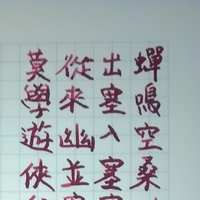 蟬鳴空桑
出塞入塞
從來幽並
莫學遊俠